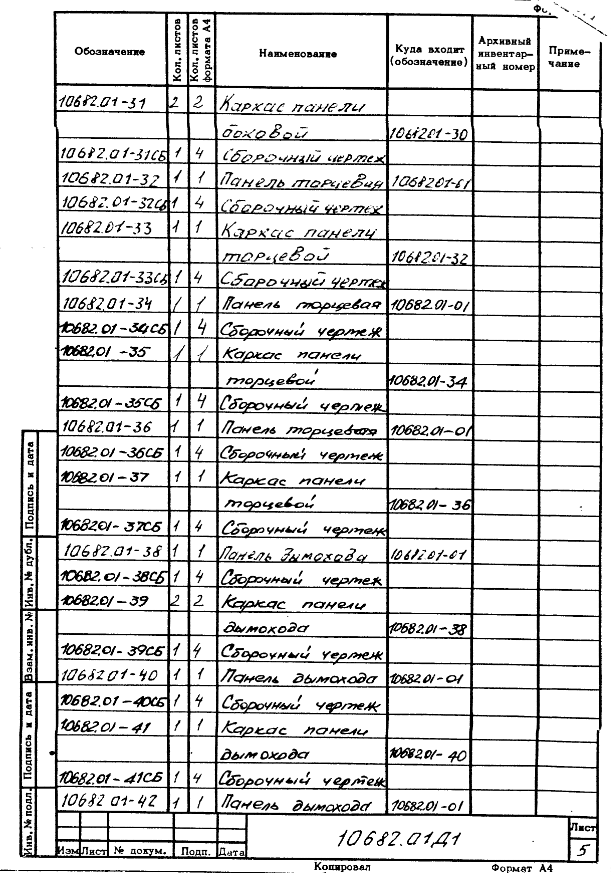 Обозначение Кол. листов Кол. листов формата А4 Наименование Куда входит (обозначение) Архивный инвентарный номер Примечание
10682.01-31 2 2 Каркас панели
боковой 1068201-30
10682.01-31СБ 1 4 Сборочный чертеж
10682.01-32 1 1 Панель торцевая 1068201-01
10682.01-32СБ 1 4 Сборочный чертеж
10682.01-33 1 1 Каркас панели
торцевой 1068201-32
10682.01-33СБ 1 4 Сборочный чертеж
10682.01-34 1 1 Панель торцевая 10682.01-01
10682.01-34СБ 1 4 Сборочный чертеж
10682.01-35 1 1 Каркас панели
торцевой 10682.01-34
10682.01-35СБ 1 4 Сборочный чертеж
10682.01-36 1 1 Панель торцевая 10682.01-01
10682.01-36СБ 1 4 Сборочный чертеж
10682.01-37 1 1 Каркас панели
торцевой 10682.01-36
10682.01-37СБ 1 4 Сборочный чертеж
10682.01-38 1 1 Панель дымохода 10682.01-01
10682.01-38СБ 1 4 Сборочный чертеж
10682.01-39 2 2 Каркас панели
дымохода 10682.01-38
10682.01-39СБ 1 4 Сборочный чертеж
10682.01-40 1 1 Панель дымохода 10682.01-01
10682.01-40СБ 1 4 Сборочный чертеж
10682.01-41 1 1 Каркас панели
дымохода 10682.01-40
10682.01-41СБ 1 4 Сборочный чертеж
10682.01-42 1 1 Панель дымохода 10682.01-01
Подпись и дата
Инв. № дубл.
Взам. инв. №
Подпись и дата
Инв. № подл.
10682.01Д1
Лист
5
Изм Лист № докум. Подп. Дата
Копировал Формат А4